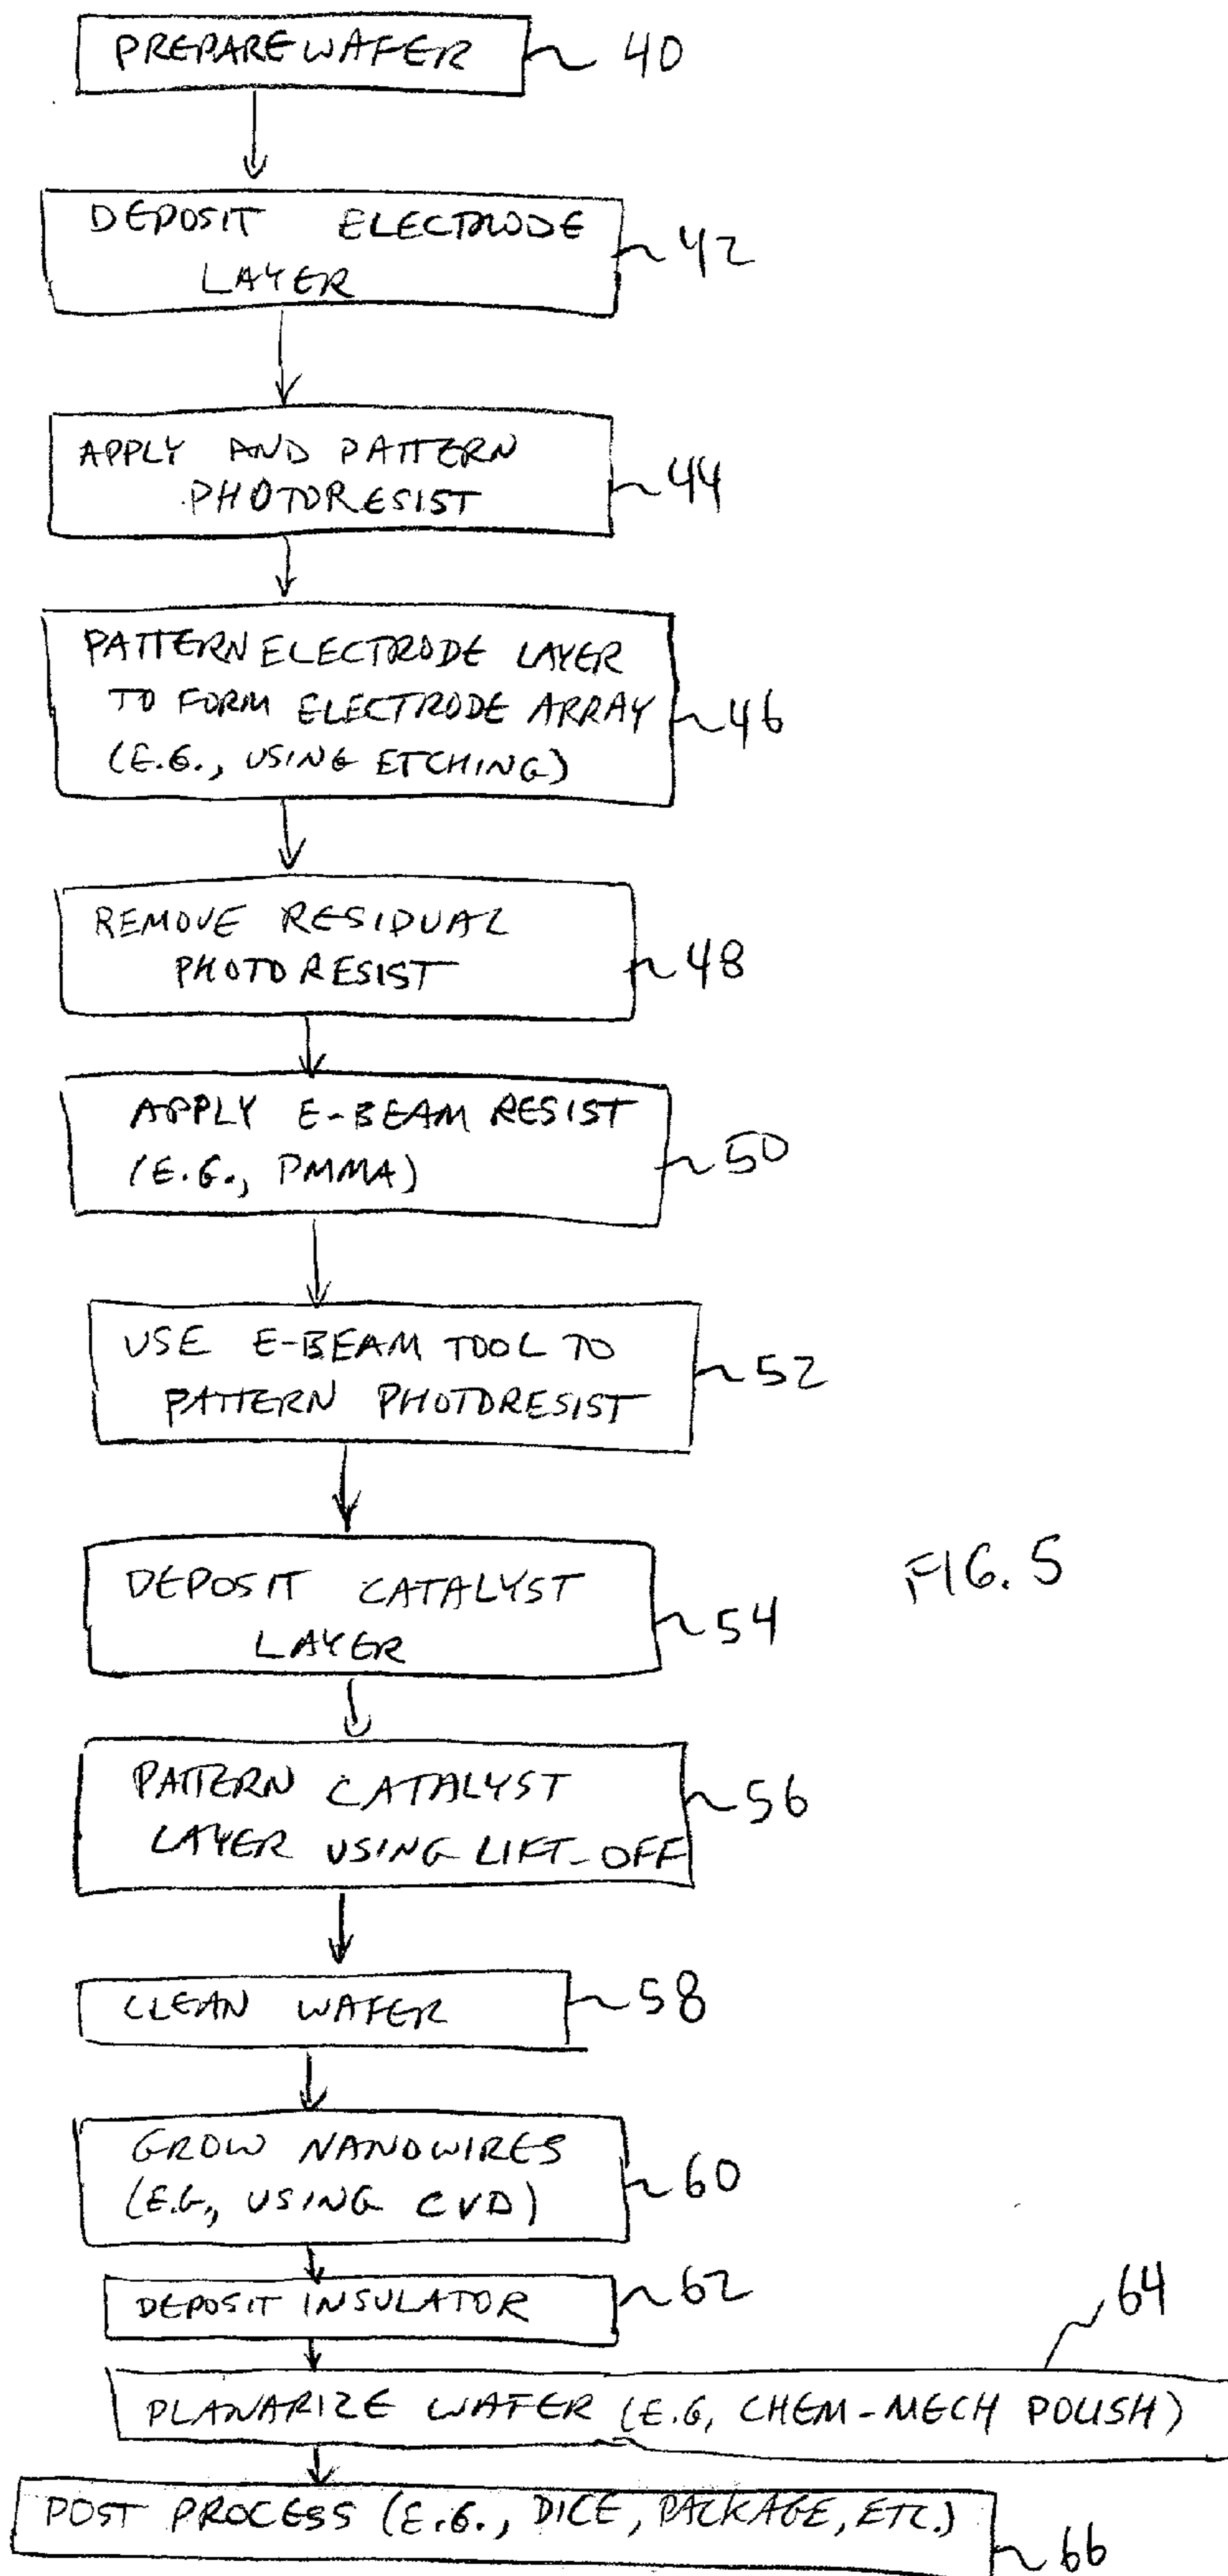 PREPARE WAFER 40
DEPOSIT ELECTRODE
LAYER 42
APPLY AND PATTERN
PHOTORESIST 44
PATTERN ELECTRODE LAYER
TO FORM ELECTRODE ARRAY 46
(E.G., USING ETCHING)
REMOVE RESIDUAL
PHOTORESIST 48
APPLY E-BEAM RESIST
(E.G., PMMA) 50
USE E-BEAM TOOL TO
PATTERN PHOTORESIST 52
DEPOSIT CATALYST
LAYER 54
FIG. 5
PATTERN CATALYST
LAYER USING LIFT-OFF 56
CLEAN WAFER 58
GROW NANOWIRES
(E.G., USING CVD) 60
DEPOSIT INSULATOR 62
64
PLANARIZE WAFER (E.G, CHEM-MECH POLISH)
POST PROCESS (E.G., DICE, PACKAGE, ETC.)
66